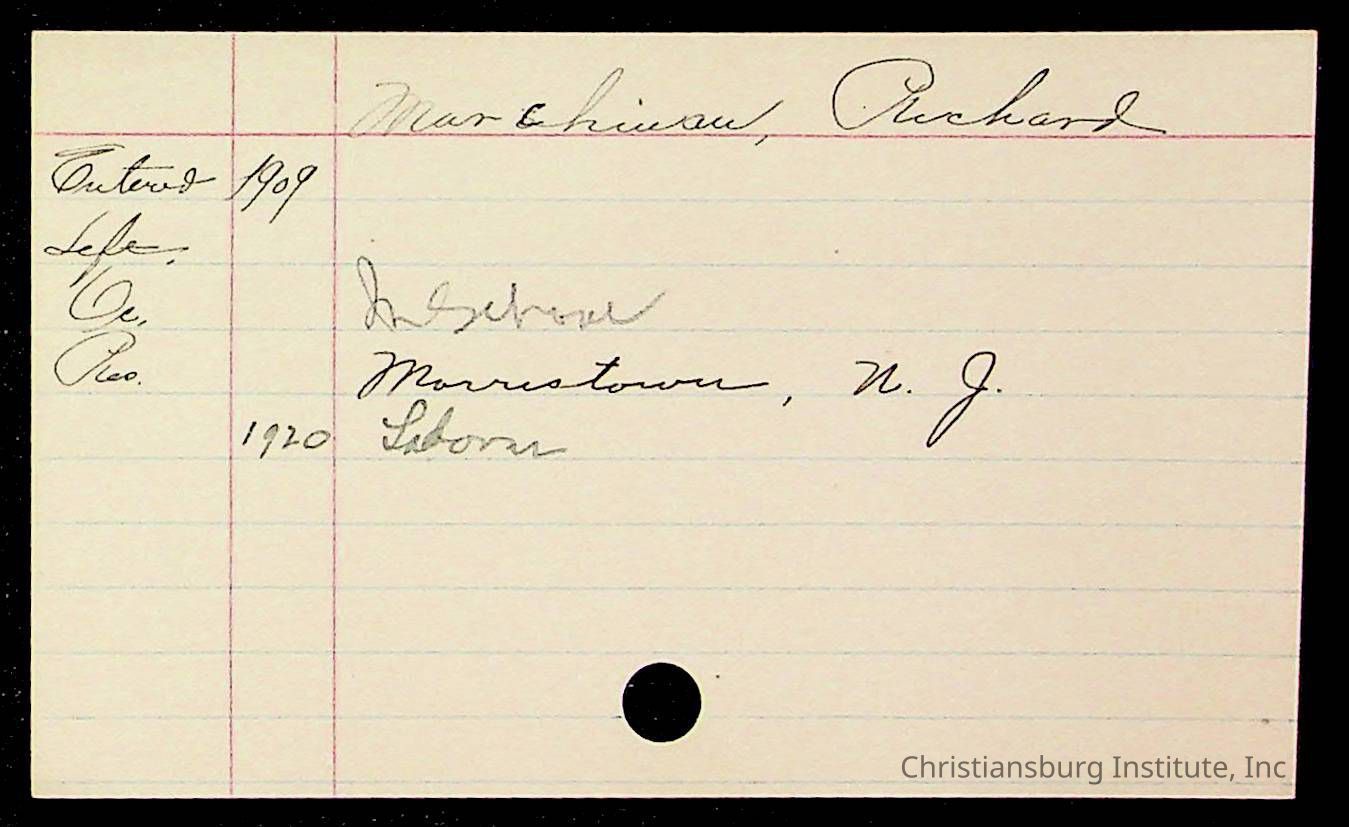 Marchman, Richard
Entered 1909
Left.
Oc. In School
Res. Morristown, N. J.
1920 Laborer
Christiansburg Institute, Inc